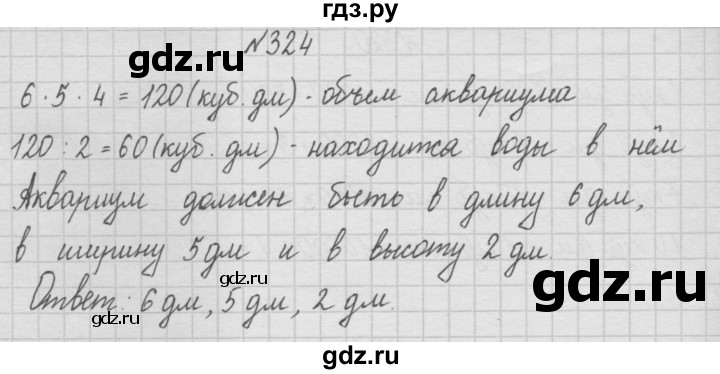 гдз.ру
gdz.ru
№324
6 · 5 · 4 = 120 (куб. дм) - объем аквариума
120 : 2 = 60 (куб. дм) - находится воды в нём
Аквариум должен быть в длину 6 дм,
в ширину 5 дм и в высоту 2 дм.
gdz.ru
gdz.ru
Ответ: 6 дм, 5 дм, 2 дм.
gdz.ru